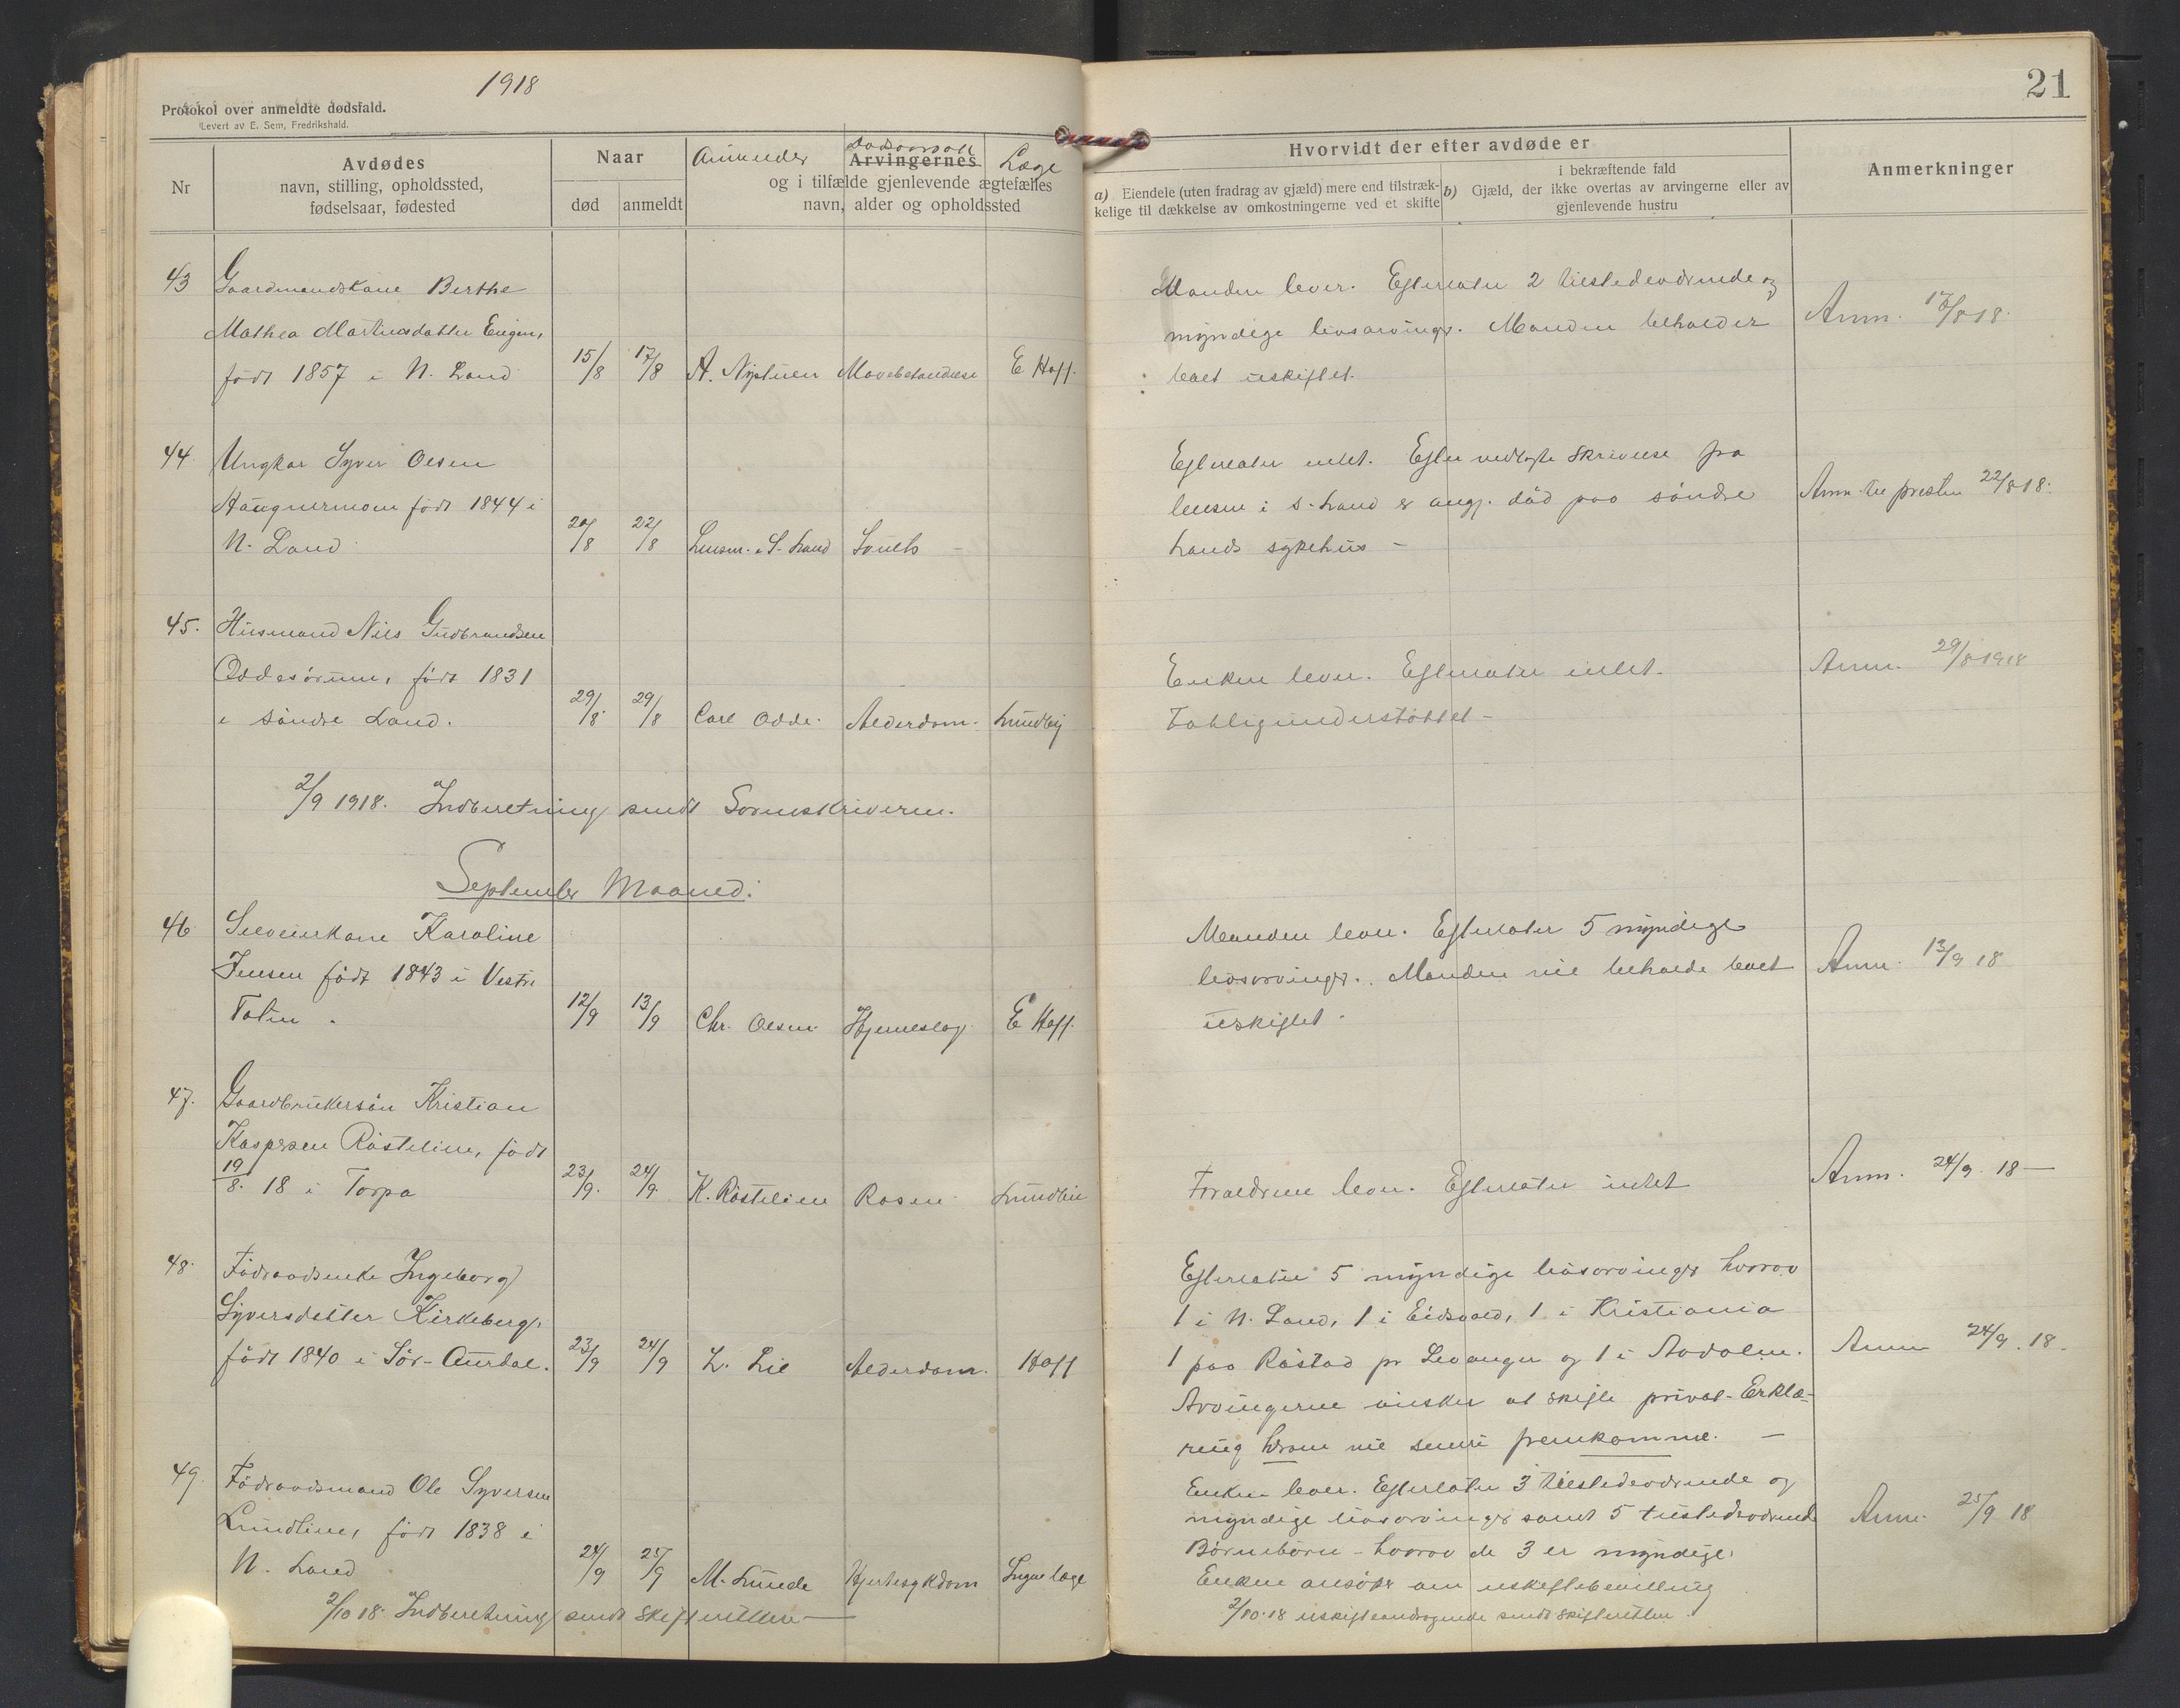 1918
21
Protokol over anmeldte dødsfald.
Levert av E. Sem, Fredrikshald.
Nr
Avdødes
navn, stilling, opholdssted,
fødselsaar, fødested
Naar
død
anmeldt
Anmelder
Dødsaarsak
Læge
Arvingernes
og i tilfælde gjenlevende ægtefælles
navn, alder og opholdssted
Hvorvidt der efter avdøde er
a) Eiendele (uten fradrag av gjæld) mere end tilstræk-
kelige til dækkelse av omkostningerne ved et skifte
i bekræftende fald
b) Gjæld, der ikke overtas av arvingerne eller av
gjenlevende hustru
Anmerkninger
43 Gaardmandskone Berthe
Mathea Martinusdatter Engen,
født 1857 i N. Land
15/8 17/8 A. Nystuen Mavebetændelse E Hoff.
Manden lever. Efterlater 2 tilstedeværende og
myndige livsarvinger. Manden beholder
boet uskiftet.
Anm. 17/8 18.
44 Ungkar Syver Olsen
Haugnermoen født 1844 i
N. Land
20/8 22/8 Lensm. i S. Land
Efterlater intet. Efter vedlagte skrivelse fra
lensm i S. Land er angj. død paa søndre
Lands sykehus -
Anm. til presten 22/8 18.
45. Husmand Nils Gudbrandsen
Oddesørum, født 1831
i søndre Land.
29/8 29/8 Carl Odde. Alderdom. Lundby
Enken lever. Efterlater intet.
Fattigunderstøttet -
Anm. 29/8 1918
2/9 1918. Indberetning sendt Sorenskriveren.
September Maaned.
46 Selveierkone Karoline
Jensen født 1843 i Vestre
Toten.
12/9 13/9 Chr. Olsen Hjerneslag. E Hoff.
Manden lever. Efterlater 5 myndige
livsarvinger. Manden vil beholde boet
uskiftet.
Anm. 13/9 18
47. Gaardbrukersøn Kristian
Kaspersen Røstelien, født
19/8. 18 i Torpa
23/9. 24/9. K. Røstelien Rosen Lundbye
Forældrene lever. Efterlater intet
Anm. 24/9. 18 —
48. Føderaadsenke Ingeborg
Syversdatter Kirkeberg,
født 1840 i Sør-Aurdal.
23/9 24/9 L. Lie Alderdom. Hoff
Efterlater 5 myndige livsarvinger hvorav
1 i N. Land, 1 i Eidsvold, 1 i Kristiania
1 paa Røstad pr Levanger og 1 i Aadalen.
Arvingerne ønsker at skifte privat. Erklæ-
ring herom vil senere fremkomme. —
Anm 24/9. 18.
49. Føderaadsmand Ole Syversen
Lundlien, født 1838 i
N. Land
24/9 25/9 M. Lunde Hjertesykdom Ingen læge
Enken lever. Efterlater 3 tilstedeværende og
myndige livsarvinger samt 5 tilstedeværende
Børnebørn - hvorav de 3 er myndige.
Enken ansøker om uskiftebevilling
2/10.18 uskifteandragende sendt skifteretten.
Anm. 25/9 18
2/10 18. Indberetning sendt skifteretten —